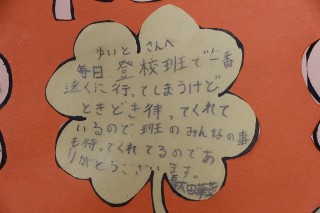 ゆいと さんへ
毎日 登校班で一番
遠くに行ってしまうけど
ときどき待ってくれて
いるので班のみんなの事
も待ってくれてるのであ
りがとうございます。